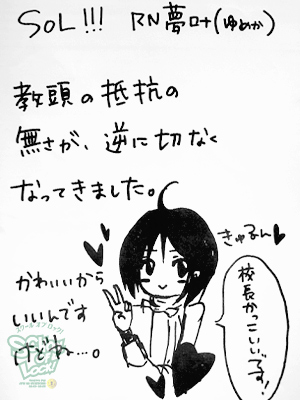 SOL!!! RN夢叶(ゆめか)
教頭の抵抗の
無さが、逆に切なく
なってきました。
きゅるん♥
かわいいから
いいんです
けどね…。
校長かっこいいです!
スクールオブロック!
SCHOOL OF LOCK!